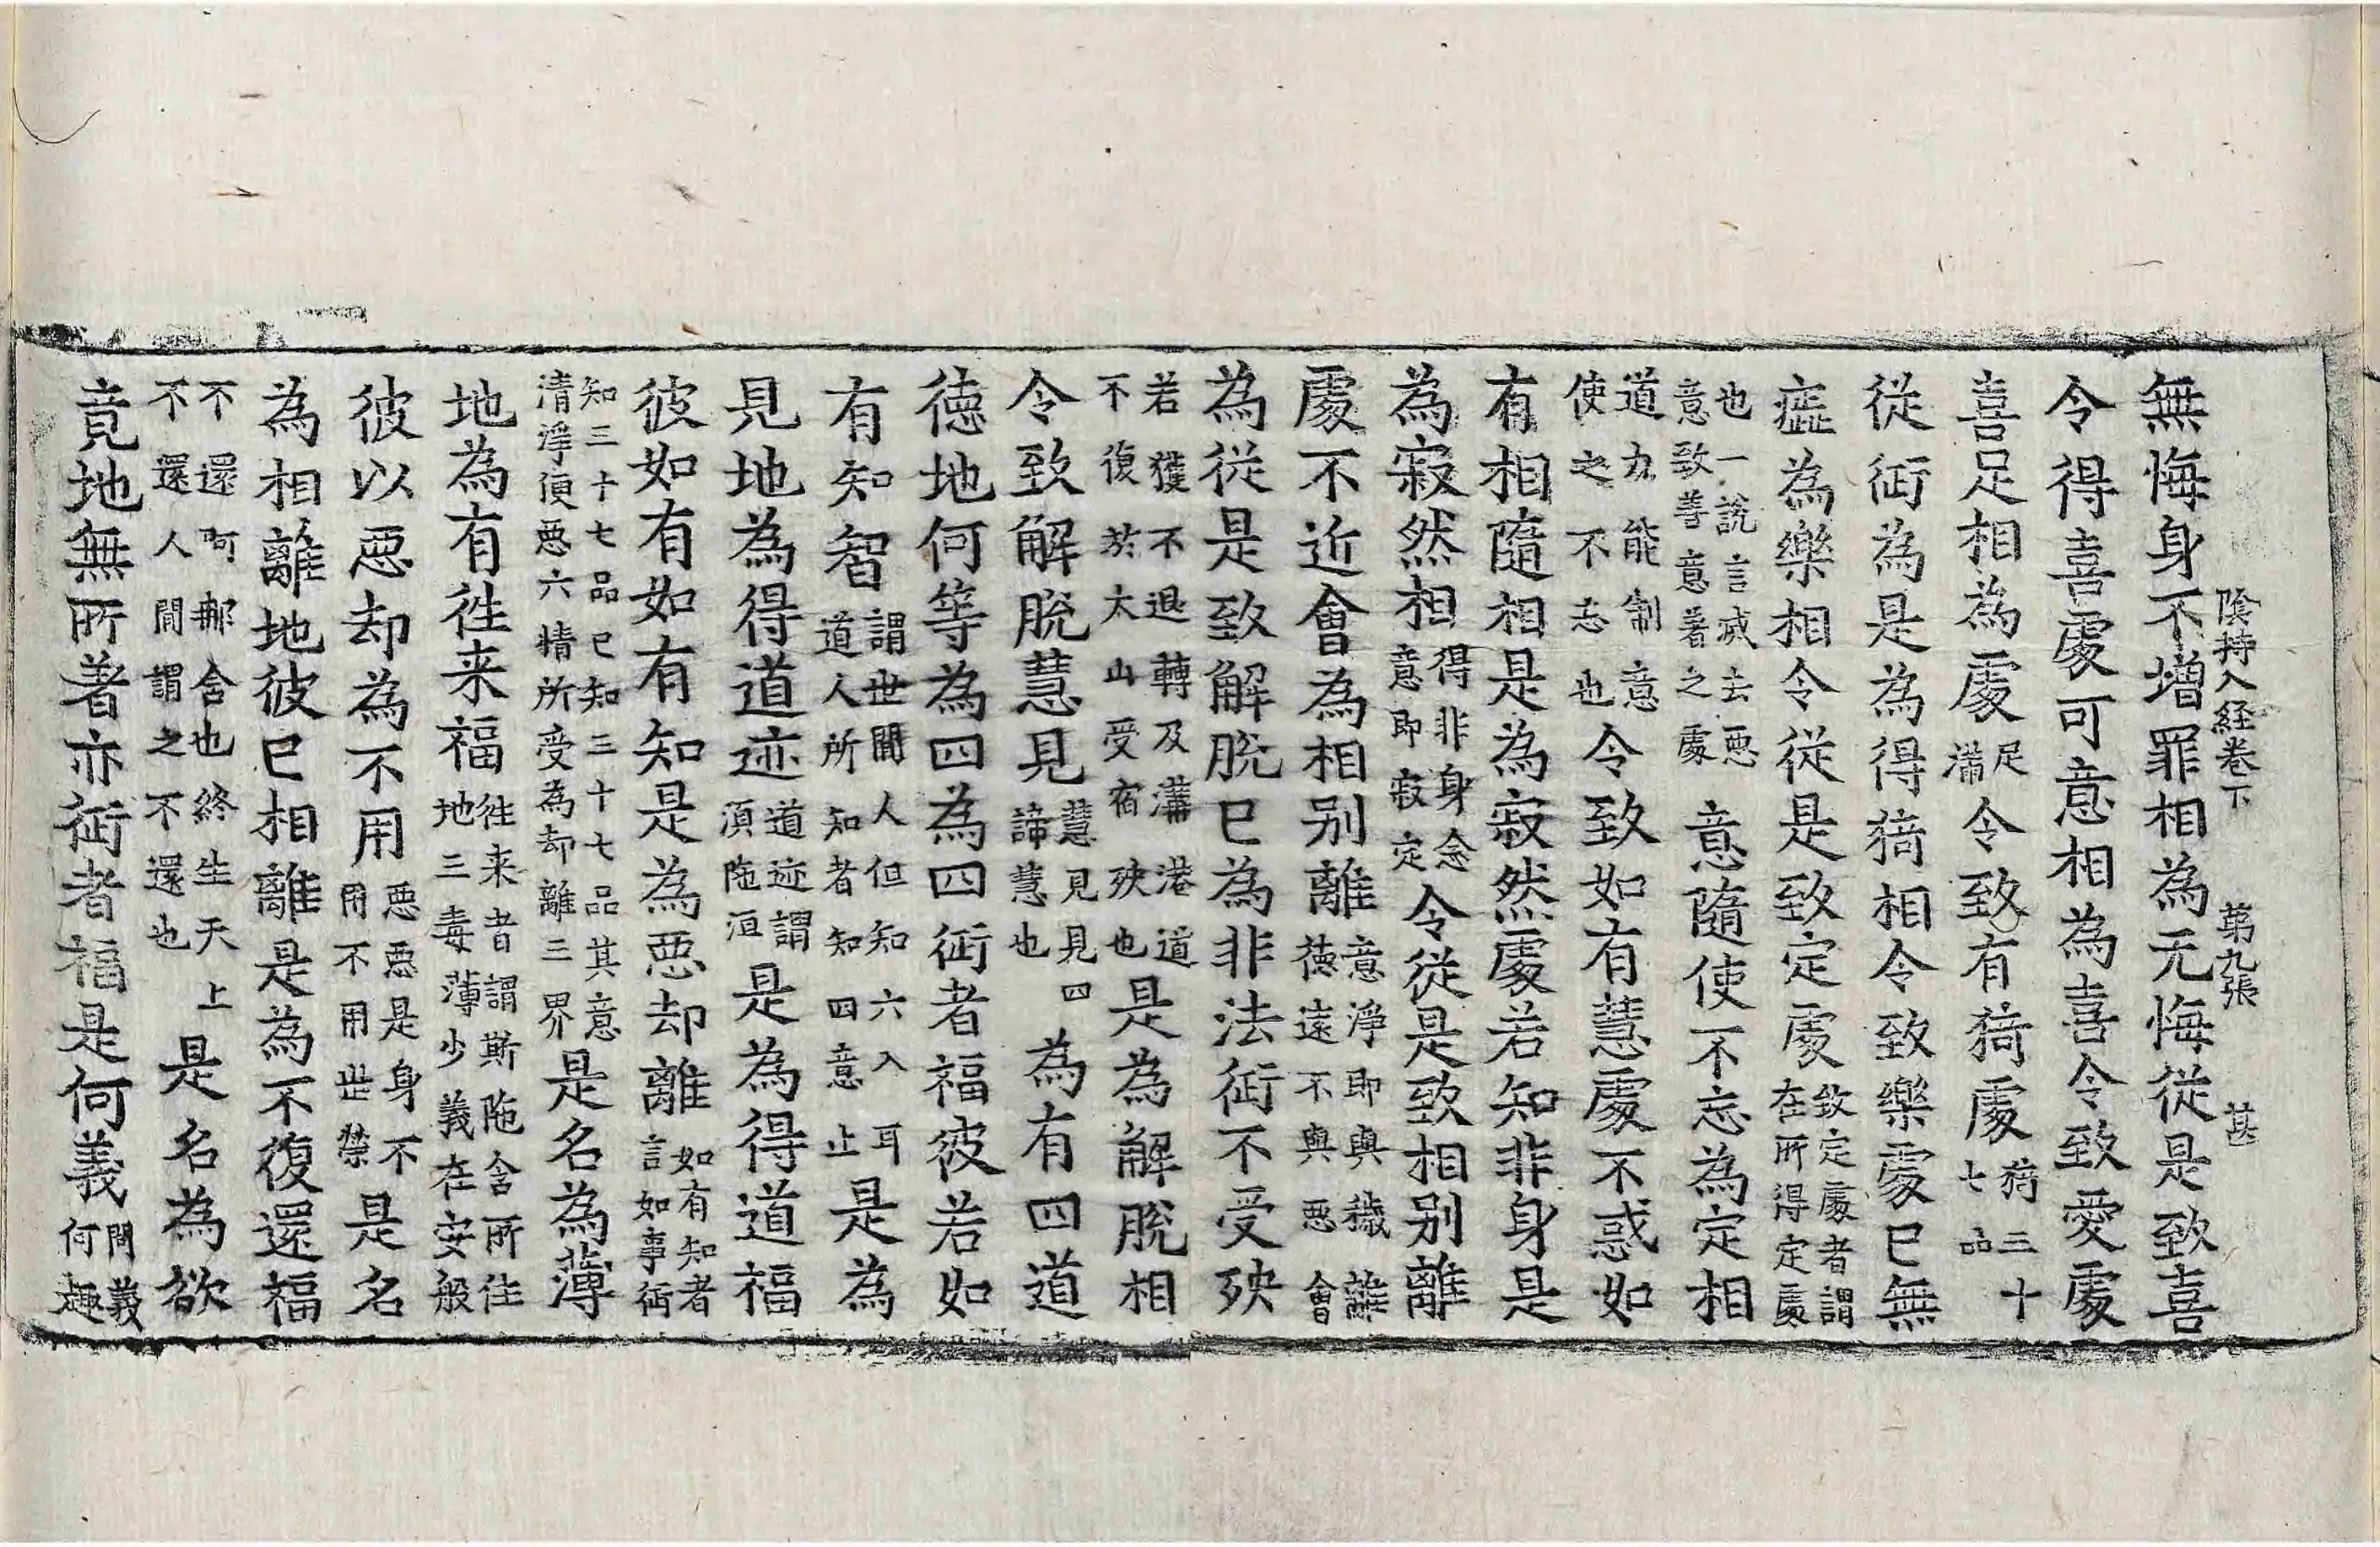 陰持入経巻下　第九張　甚
無悔身不增罪相為无悔從是致喜
令得喜處可意相為喜令致愛處
喜足相為處足滿令致有猗處猗三十七品
從衏為是為得猗相令致樂處已無
𤷒為樂相令從是致定處致定處者謂在所得定處
也一說言滅去惡意致善意著之處意隨使不忘為定相
道力能制意使之不志也令致如有慧處不惑如
有相隨相是為寂然處若知非身是
為寂然相得非身念意即寂定令從是致相別離
處不近會為相別離意淨即與穢離德遠不與惡會
為從是致解脫已為非法衏不受殃
若獲不退轉及溝港道不復於太山受宿殃也是為解脫相
令致解脫慧見慧見見四諦慧也為有四道
德地何等為四為四衏者福彼若如
有知智謂世閒人但知六入耳道人所知者知四意止是為
見地為得道迹道迹謂湏陁洹是為得道福
彼如有如有知是為惡却離如有知者言如事衏
知三十七品已知三十七品其意清淨便惡六情所受為却離三界是名為薄
地為有徃来福徃来者謂斯陁含所住地三毒薄少義在安般
彼以惡却為不用惡惡是身不用不用世榮是名
為相離地彼已相離是為不復還福
不還阿那含也終生天上不還人間謂之不還也是名為欲
竟地無所著亦衏者福是何義問義何趣